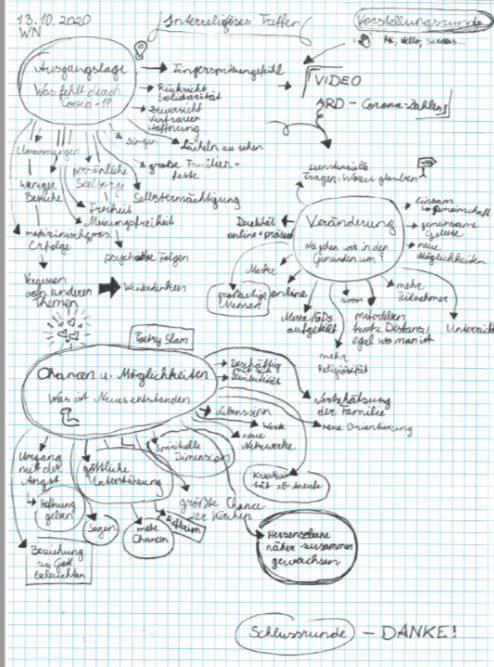 13.10.2020
WN
Interreligiöses Treffen
Vorstellungsrunde
Hi, Hello, Servus...
Ausgangslage
Was fehlt durch
Corona?
Fingerspitzengefühl
Rücksicht
Solidarität
Zuversicht
Vertrauen
Hoffnung
VIDEO
ARD-Corona-Zahlen
Singen
Lächeln zu sehen
große Familien-
feste
Umarmungen
persönliche
Seelsorge
Selbstermächtigung
weniger
Besuche
Freiheit
Meinungsfreiheit
medizinisches
Erfolge
psychische Folgen
Vergessen
von anderen
Themen
Weiterdenken
existenzielle
Fragen: Wozu glauben
Veränderung
Wie gehen wir in den
Gemeinden um?
Dualität
online + präsent
einsam
Gemeinschaft
gemeinsame
Gebete
neue
Möglichkeiten
Messe
online
Messe/GDs
aufgeteilt
zoom
mehr
Religiosität
mitfeiern
trotz Distanz,
egal wo man ist
mehr
Teilnehmer
Unterricht
Poetry Slam
Chancen u. Möglichkeiten
Was ist Neues entstanden
Wertschätzung
der Familie
neue Orientierung
Lebenssinn
neue
Netzwerke
Spirituelle
Dimension
Umgang
mit der
Angst
Hoffnung
geben
göttliche
Unterstützung
Segen
mehr
Chancen
größte Chance
der Kirchen
Reflexion
Beziehung
zu Gott
beleuchten
Herzensebene
näher zusammen
gewachsen
Schlussrunde – DANKE!